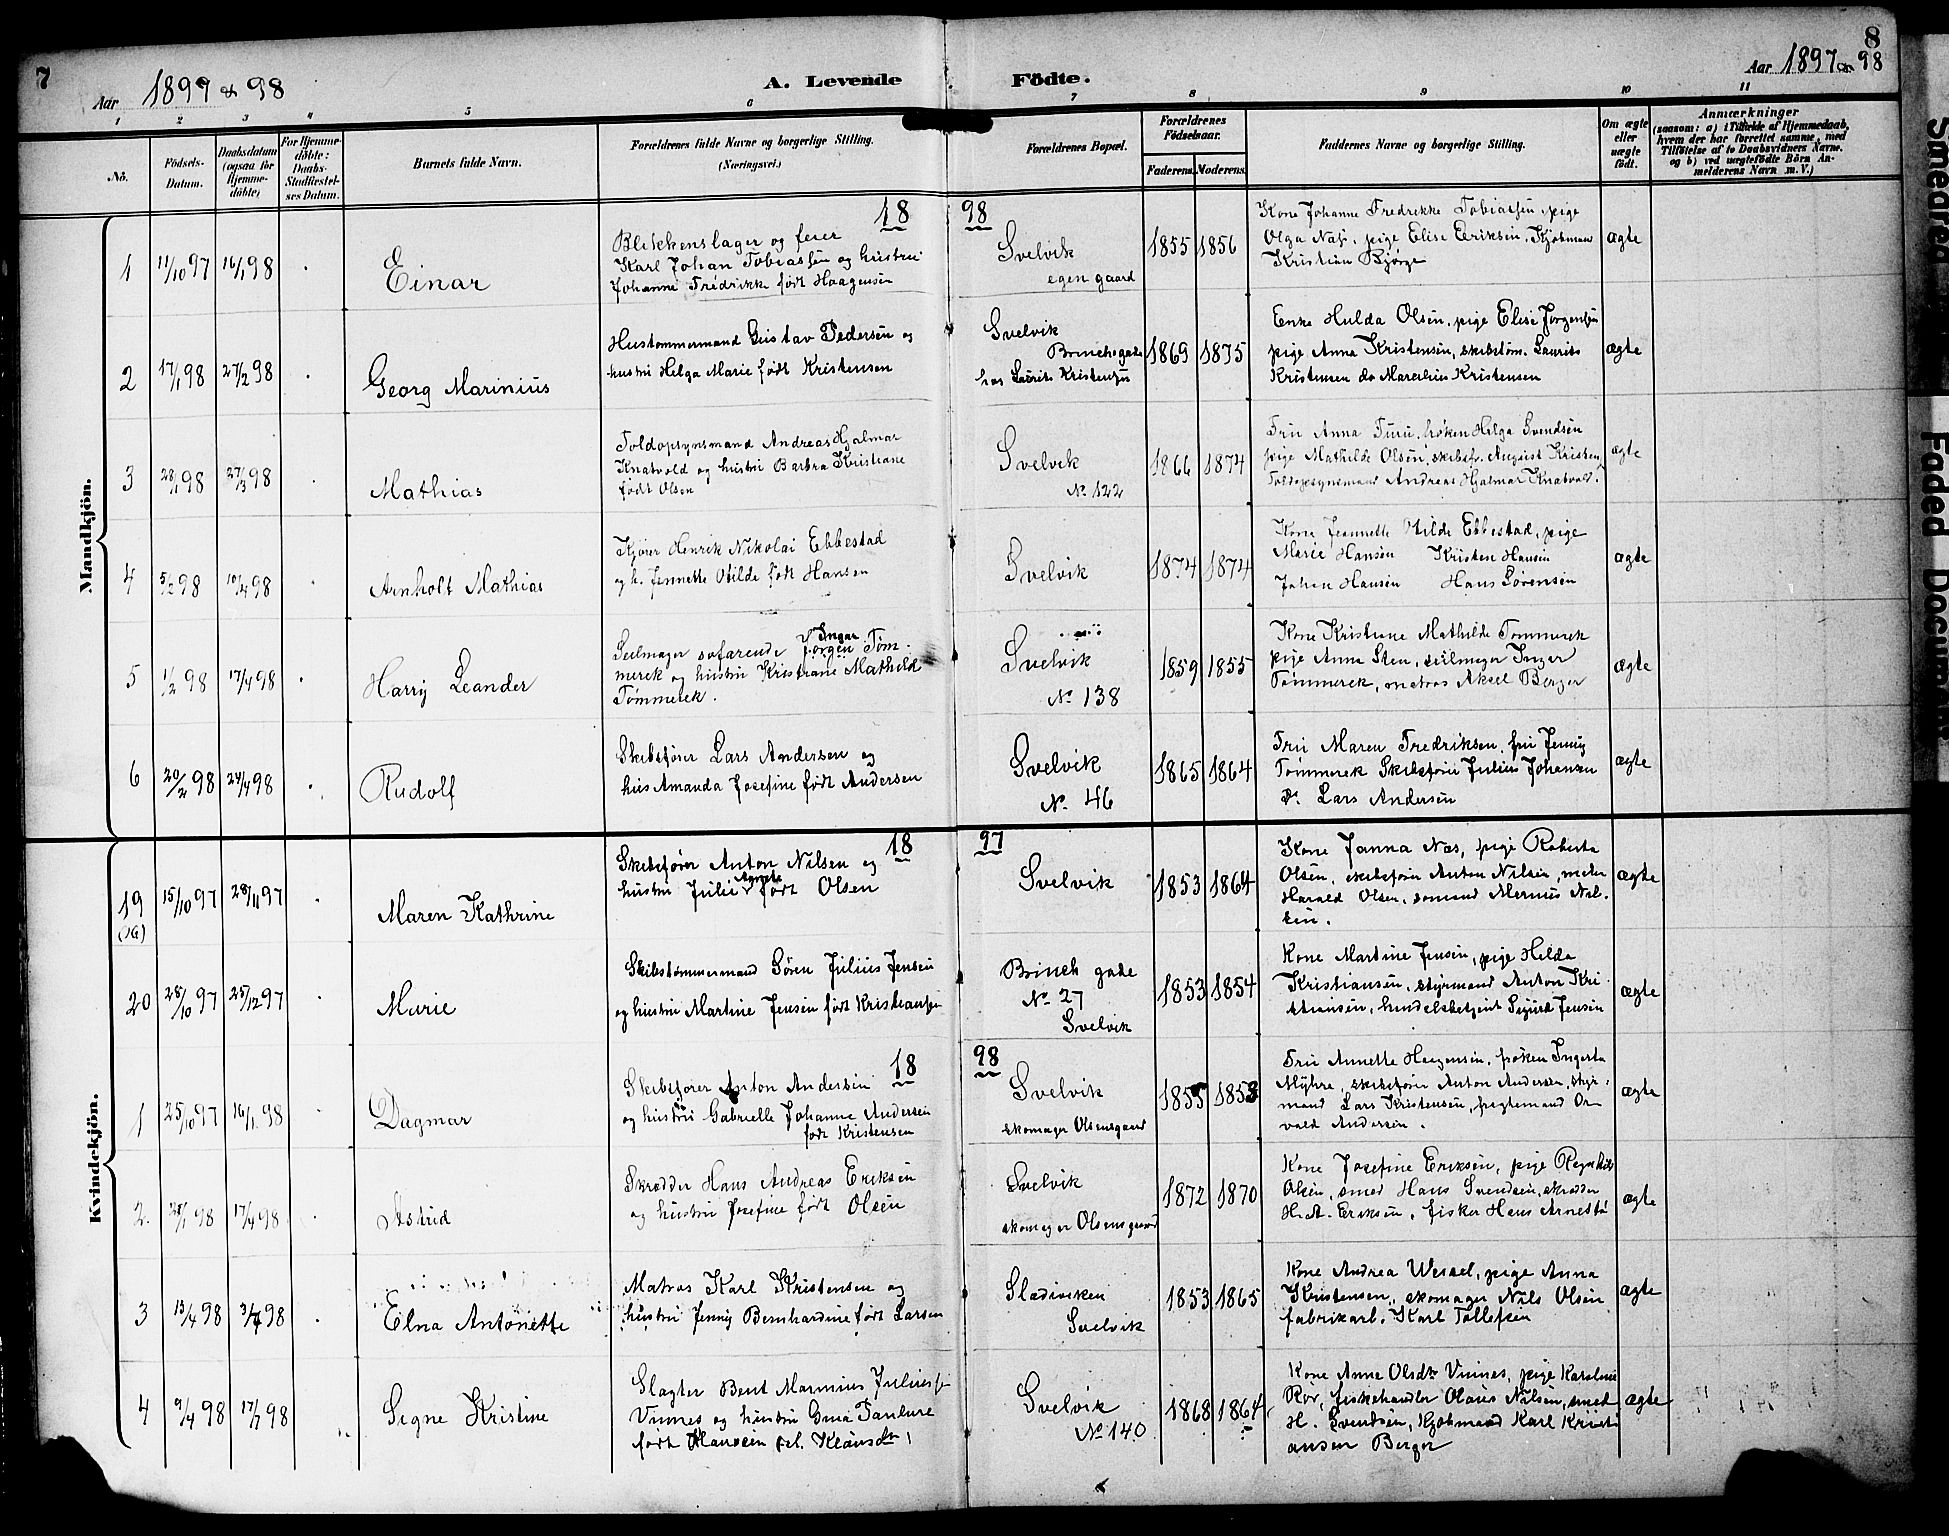 7
8
Aar 1897 & 98
A. Levende Födte.
Aar 1897 & 98
1 2 3 4 5 6 7 8 9 10 11
No.
Födsels-Datum.
Daabsdatum (ogsaa for Hjemme-döbte)
For Hjemme-döbte: Daabs-Stadfæstel-ses Datum.
Barnets fulde Navn.
Forældrenes fulde Navne og borgerlige Stilling.
(Næringsvei.)
Forældrenes Bopæl.
Forældrenes Födselsaar.
Faderens. Moderens.
Faddernes Navne og borgerlige Stilling.
Om ægte eller uægte födt.
Anmærkninger
(saasom: a) i Tilfælde af Hjemmedaab,
hvem der har forrettet samme, med
Tilföielse af to Daabsvidners Navne,
og b) ved uægtefödte Börn An-
melderens Navn m. V.)
Mandkjön.
18 98
1 11/10 97 16/1 98
Einar
Blikkenslager og feier
Karl Johan Tobiassen og hustru
Johanne Fredrikke født Haagensen
Svelvik
egen gaard
1855 1856
Kone Johanne Fredrikke Tobiassen, pige
Olga Næs, pige Elise Eriksen, Kjøbmand
Kristian Bjørge
ægte
2 17/1 98 27/2 98
Georg Marinius
Hustømmermand Gustav Pedersen og
hustru Helga Marie født Kristensen
Svelvik
Brinchsgade
hos Laurits Kristensen
1869 1875
Enke Hulda Olsen, pige Elise Jørgensen
pige Anna Kristensen, skibstøm. Laurits
Kristensen do Marelius Kristensen
ægte
3 28/1 98 27/3 98
Mathias
Toldopsynsmand Andreas Hjalmar
Knatvold og hustru Barbra Kristiane
født Olsen
Svelvik
No. 122
1866 1874
Fru Anna Furu, frøken Helga Svendsen
pige Mathilde Olsen, skibsf. August Kristen
Toldopsynsmand Andreas Hjalmar Knatvold.
ægte
4 5/2 98 10/4 98
Arnholt Mathias
Kjører Henrik Nikolai Ebbestad
og h. Jennette Otilde født Hansen
Svelvik
1874 1874
Kone Jeannette Otilde Ebbestad, pige
Marie Hansen Kristen Hansen
Johan Hansen Hans Sørensen
ægte
5 1/2 98 17/4 98
Harry Leander
Ingar
Seilmager søfarende Jørgen Tøm-
merek og hustru Kristiane Mathild
Tømmerek.
Svelvik
No. 138
1859 1855
Kone Kristiane Mathilde Tømmerek
pige Anna Sten, seilmager Inger
Tømmerek, matros Aksel Berger
ægte
6 20/2 98 24/4 98
Rudolf
Skibsfører Lars Andersen og
hus Amanda Josefine født Andersen
Svelvik
No. 46
1865 1864
Fru Maren Fredriksen, fru Jenny
Tømmerek Skibsfører Julius Johansen
do. Lars Andersen
ægte
Kvindekjön.
18 97
19 15/10 97 28/11 97
(16)
Maren Kathrine
Skibsfører Anton Nilsen og
hustru Julie Agnete født Olsen
Svelvik
1853 1864
Kone Janna Næs, pige Roberta
Olsen, skibsfører Anton Nilsen, maler
Harald Olsen, sømand Mernus Nil-
sen.
ægte
20 28/10 97 25/12 97
Marie
Skibstømmermand Søren Julius Jensen
og hustru Martine Jensen født Kristiansen
Brinch gade
No. 27
Svelvik
1853 1854
Kone Martine Jensen, pige Hilda
Kristiansen, styrmand Anton Kri-
stiansen, handelsbetjent Sigurd Jensen
ægte
18 98
1 25/10 97 16/1 98
Dagmar
Skibsfører Anton Andersen
og hustru Gabrielle Johanne Andersen
født Kristensen
Svelvik
skomager Olsensgaard
1855 1853
Fru Annette Haagensen, frøken Ingerta
Myhre, skibsfører Anton Andersen, styr-
mand Lars Kristensen, fragtemand Or-
vald Andersen.
ægte
2. 28/1 98 17/4 98
Astrid
Skrædder Hans Andreas Eriksen
og hustru Josefine født Olsen
Svelvik
skomager Olsensgaard
1872 1870
Kone Josefine Eriksen, pige Ragnhild
Olsen, smed Hans Svendsen, skrædder
H. A. Eriksen, fisker Hans Arnesta
ægte
3 13/4 98 3/7 98
Elna Antonette
Matros Karl Kristensen og
hustru Jenny Bernhardine født Larsen
Sladiviken
Svelvik
1853 1865
Kone Andrea Wessel, pige Anna
Kristensen, skomager Nils Olsen
fabrikarb. Karl Tollefsen
ægte
4 9/4 98 17/7 98
Signe Kristine
Slagter Bent Marinius Juliusen
Vinnes og hustru
født Hansen
Svelvik
No 140
1868 1864
Kone Anne Olsdtr Vinnes, pige Karoline
Rør, fiskehandler Olaus Nilsen, smed
H. Svendsen, Kjøbmand Karl Kristi
ansen Berger
ægte
Faded Document